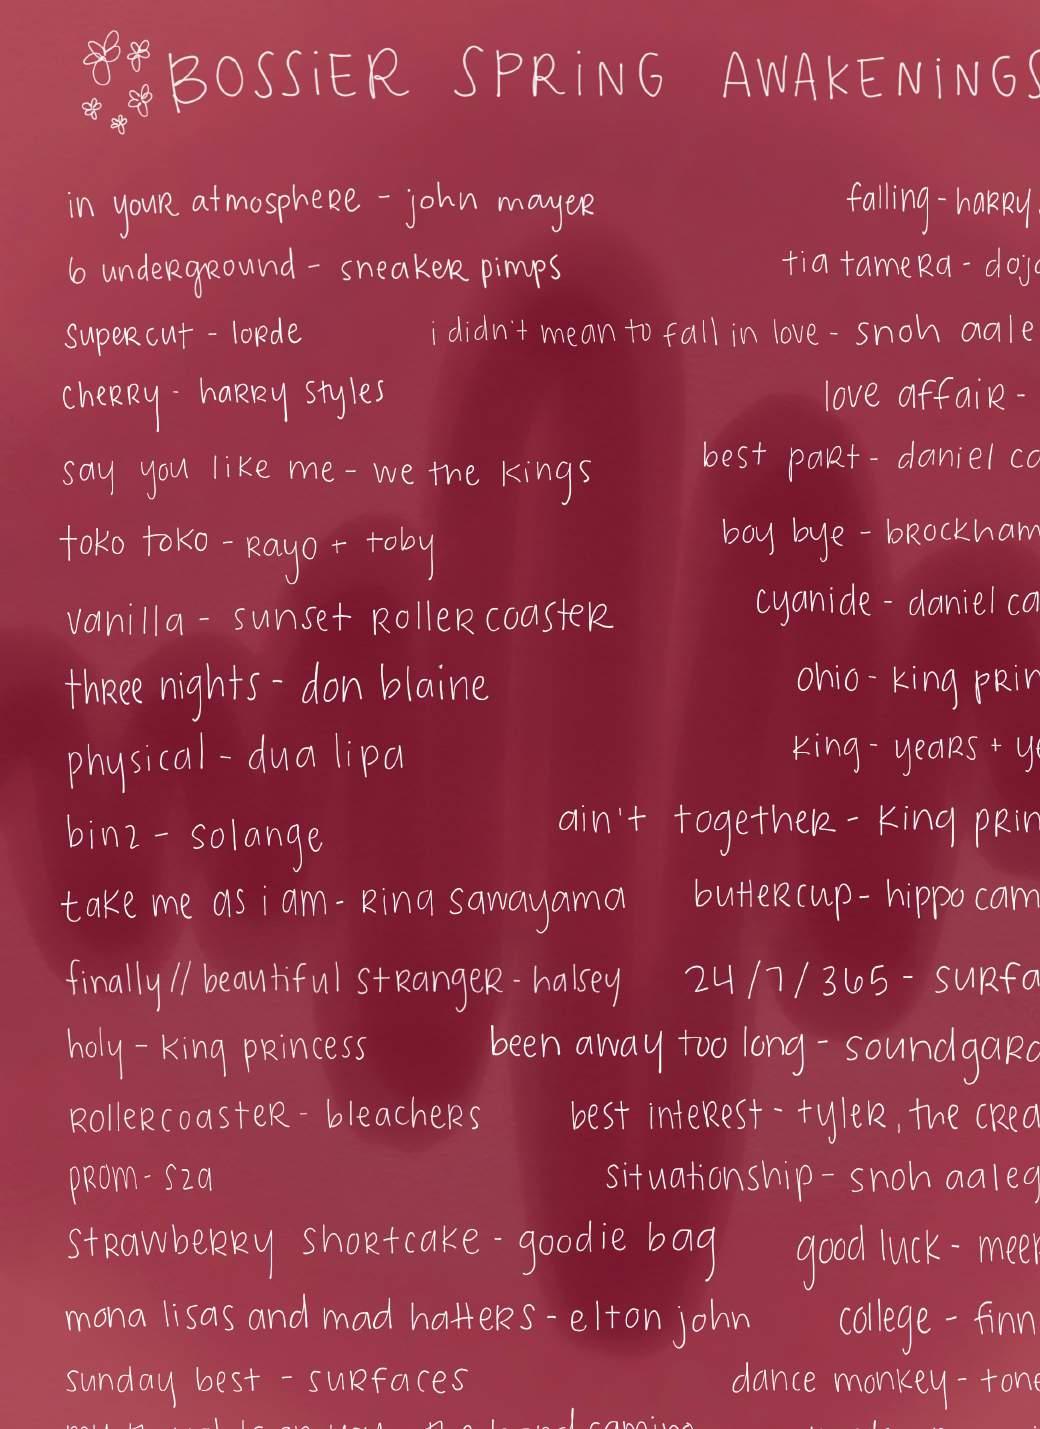 BOSSIER SPRING AWAKENINGS
in your atmosphere - john mayer
falling - harry
6 underground - sneaker pimps
tia tamera - doja
supercut - lorde
i didn't mean to fall in love - snoh aale
cherry - harry styles
love affair -
say you like me - we the kings
best part - daniel ca
toko toko - rayo + toby
boy bye - brockham
vanilla - sunset rollercoaster
cyanide - daniel ca
three nights - don blaine
ohio - king prin
physical - dua lipa
king - years + ye
binz - solange
ain't together - king prin
take me as i am - rina sawayama
buttercup - hippo cam
finally // beautiful stranger - halsey
24/7/365 - surfa
holy - king princess
been away too long - soundgard
rollercoaster - bleachers
best interest - tyler, the crea
prom - sza
situationship - snoh aaleg
strawberry shortcake - goodie bag
good luck - meer
mona lisas and mad hatters - elton john
college - finn
sunday best - surfaces
dance monkey - tone